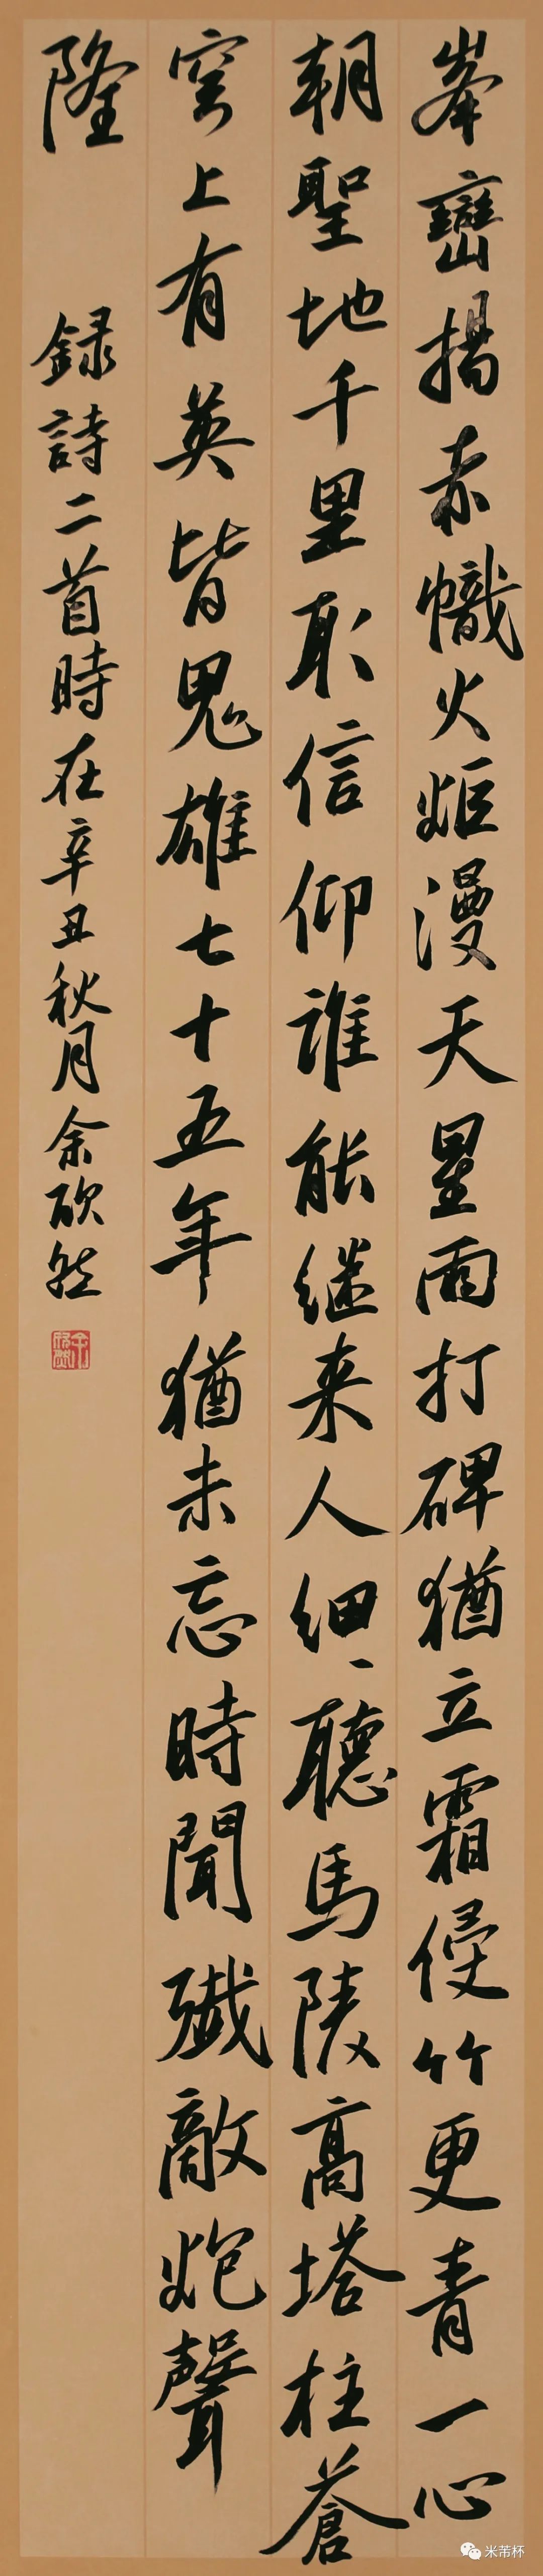 峯巒揚赤幟火炬漫天星雨打碑猶立霜侵竹更青一心
朝聖地千里取信仰誰能继来人细、聽馬陵高塔柱蒼
穹上有英皆鬼雄七十五年猶未忘時聞殲敵炮聲
隆
録詩二首時在辛丑秋月余砍然
米芾杯